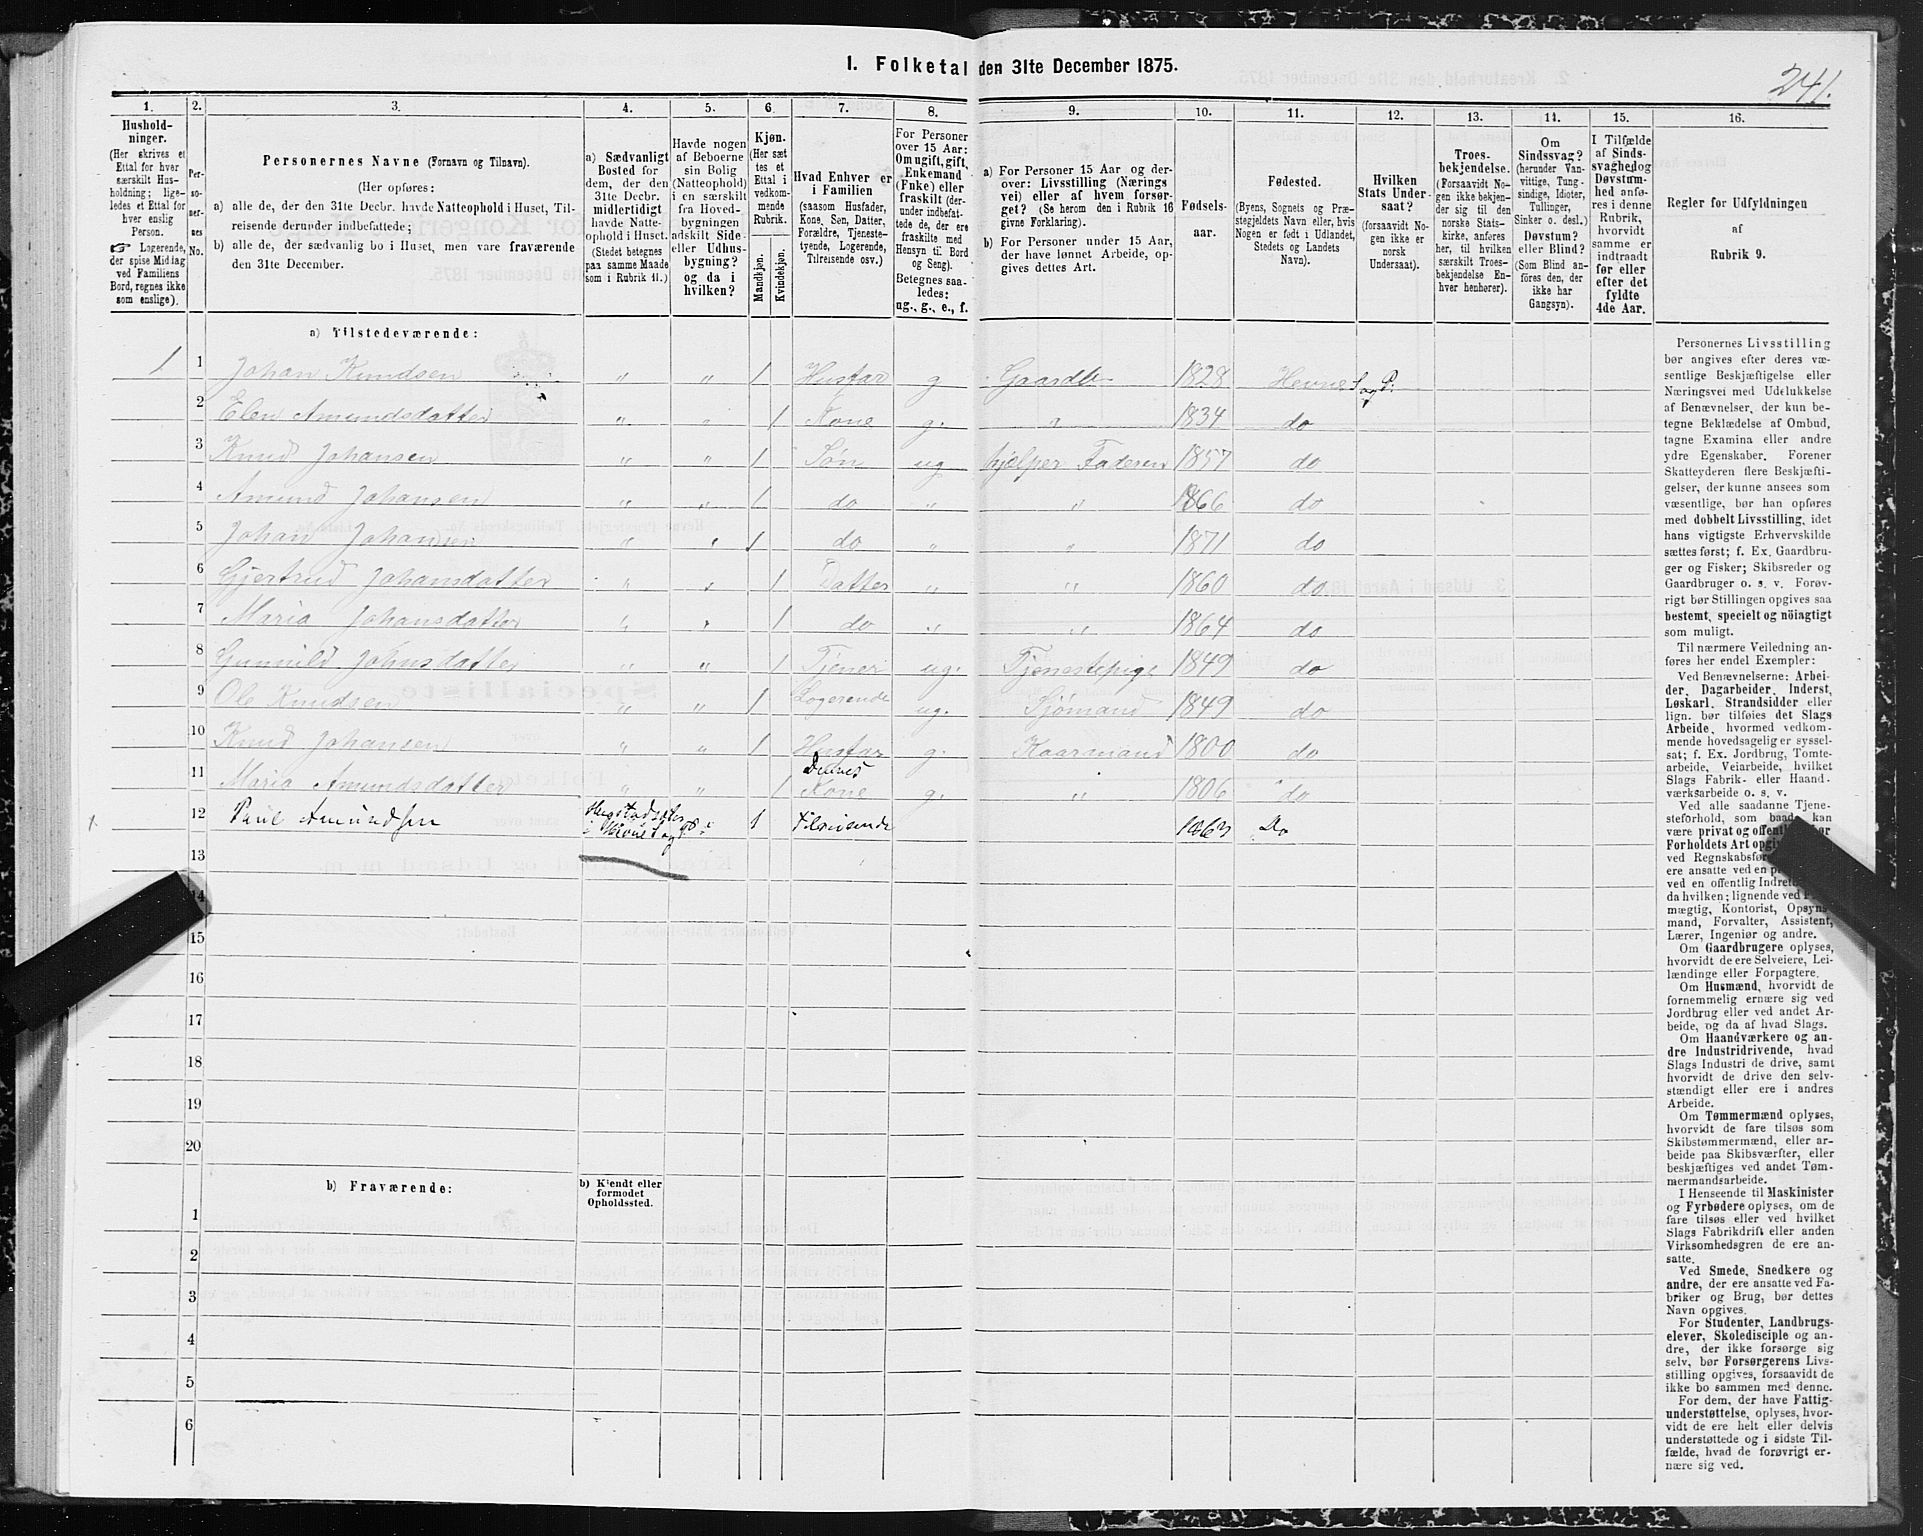 I. Folketal den 31te December 1875.
241.
1. 2. 3. 4. 5. 6. 7. 8. 9. 10. 11. 12. 13. 14. 15. 16.
Hushold-
ninger.
(Her skrives et
Ettal for hver
særskilt Hus-
holdning; lige-
ledes et Ettal for
hver enslig
Person.
☞ Logerende,
der spise Middag
ved Familiens
Bord, regnes ikke
som enslige).
Per-
so-
ner-
nes
No.
Personernes Navne (Fornavn og Tilnavn).
(Her opføres:
a) alle de, der den 31te Decbr. havde Natteophold i Huset, Til-
reisende derunder indbefattede;
b) alle de, der sædvanlig bo i Huset, men vare fraværende
den 31te December.
a) Sædvanligt
Bosted for
dem, der den
31te Decbr.
midlertidigt
havde Natte-
ophold i Huset.
(Stedet betegnes
paa samme Maade
som i Rubrik 11.)
Havde nogen
af Beboerne
sin Bolig
(Natteophold)
i en særskilt
fra Hoved-
bygningen
adskilt Side-
eller Udhus-
bygning?
og da i
hvilken?
Kjøn.
(Her sæt-
tes et
Ettal i
vedkom-
mende
Rubrik.
Mandkjøn.
Kvindekjøn.
Hvad Enhver er
i Familien
(saasom Husfader,
Kone, Søn, Datter,
Forældre, Tjeneste-
tyende, Logerende,
Tilreisende osv.)
For Personer
over 15 Aar:
Om ugift, gift,
Enkemand
(Enke) eller
fraskilt (der-
under indbefat-
tede de, der ere
fraskilte med
Hensyn til Bord
og Seng).
Betegnes saa-
ledes:
ug., g., e., f.
a) For Personer 15 Aar og der-
over: Livsstilling (Nærings
vei) eller af hvem forsør-
get? (Se herom den i Rubrik 16
givne Forklaring).
b) For Personer under 15 Aar,
der have lønnet Arbeide, op-
gives dettes Art.
Fødsels-
aar.
Fødested.
(Byens, Sognets og Præ-
stegjeldets Navn eller, hvis
Nogen er født i Udlandet,
Stedets og Landets
Navn).
Hvilken
Stats Under-
saat?
(forsaavidt No-
gen ikke er
norsk
Undersaat).
Troes-
bekjendelse.
(Forsaavidt No-
gen ikke bekjen-
der sig til den
norske Stats-
kirke, anføres
her, til hvilken
særskilt Troes-
bekjendelse En-
hver henhører).
Om
Sindssvag?
(herunder Van-
vittige, Tung-
sindige, Idioter,
Tullinger,
Sinker o. desl.)
Døvstum?
eller Blind?
(Som Blind an-
føres den, der
ikke har
Gangsyn).
I Tilfælde
af Sinds-
svaghed og
Døvstum-
hed anfø-
res i denne
Rubrik,
hvorvidt
samme er
indtraadt
før eller
efter det
fyldte
4de Aar.
Regler for Udfyldningen
af
Rubrik 9.
a) Tilstedeværende:
1 1 Johan Knudsen " " 1 Husfar g Gaardb 1828 Hevne S og P.
2 Elen Amundsdatter " " 1 Kone g. " 1834 do
3 Knud Johansen " " 1 Søn ug hjelper Faderen 1857 do
4 Amund Johansen " " 1 do " " 1866 do
5 Johan Johansen " " 1 do " " 1871 do
6 Gjertrud Johansdatter " " 1 Datter " " 1860 do
7 Maria Johansdatter " " 1 do " " 1864 do
8 Gunnild Johnsdatter " " 1 Tjener ug. Tjenestepige 1849 do
9 Ole Knudsen " " 1 Logerende ug. Sjømand 1849 do
10 Knud Johansen " " 1 Husfar g. Kaarmand 1800 do
11 Maria Amundsdatter " " 1 Kone g. " 1806 do
1. 12 Paul Amundsen 1 Tilreisende Do
13
14
15
16
17
18
19
20
b) Fraværende:
b) Kjendt eller
formodet
Opholdssted.
1
2
3
4
5
6
Personernes Livsstilling
bør angives efter deres væ-
sentlige Beskjæftigelse eller
Næringsvei med Udelukkelse
af Benævnelser, der kun be-
tegne Beklædelse af Ombud,
tagne Examina eller andre
ydre Egenskaber. Forener
Skatteyderen flere Beskjæfti-
gelser, der kunne ansees som
væsentlige, bør han opføres
med dobbelt Livsstilling, idet
hans vigtigste Erhvervskilde
sættes først; f. Ex. Gaardbru-
ger og Fisker; Skibsreder og
Gaardbruger o. s. v. Forøv-
rigt bør Stillingen opgives saa
bestemt, specielt og nöiagtigt
som muligt.
Til nærmere Veiledning an-
føres her endel Exempler:
Ved Benævnelserne: Arbei-
der, Dagarbeider, Inderst,
Løskarl, Strandsidder eller
lign. bør tilføies det Slags
Arbeide, hvormed vedkom-
mende hovedsagelig er syssel-
sat; f. Ex. Jordbrug, Tomte-
arbeide, Veiarbeide, hvilket
Slags Fabrik- eller Haand-
værksarbeide o. s. v.
Ved alle saadanne Tjene-
steforhold, som baade kan
være privat og
Forholdets Art
ved Regnskabsfø
ere ansatte ved en
ved en offentlig Indret
da hvilken; lignende ved
mægtig, Kontorist, Opsyns-
mand, Forvalter, Assistent,
Lærer, Ingeniør og andre.
Om Gaardbrugere oplyses,
hvorvidt de ere Selveiere, Lei-
lændinge eller Forpagtere.
Om Husmænd, hvorvidt de
fornemmelig ernære sig ved
Jordbrug eller ved andet Ar-
beide, og da af hvad Slags.
Om Haandværkere og an-
dre Industridrivende, hvad
Slags Industri de drive, samt
hvorvidt de drive den selv-
stændigt eller ere i andres
Arbeide.
Om Tømmermænd oplyses,
hvorvidt de fare tilsøs som
Skibstømmermænd, eller ar-
beide paa Skibsværfter, eller
beskjæftiges ved andet Tøm-
mermandsarbeide.
I Henseende til Maskinister
og Fyrbødere oplyses, om de
fare tilsøs eller ved hvilket
Slags Fabrikdrift eller anden
Virksomhedsgren de ere an-
satte.
Ved Smede, Snedkere og
andre, der ere ansatte ved Fa-
briker og Brug, bør dettes
Navn opgives.
For Studenter, Landbrugs-
elever, Skoledisciple og an-
dre, der ikke forsørge sig
selv, bør Forsørgerens Livs-
stilling opgives, forsaavidt de
ikke bo sammen med denne.
For dem, der have Fattig-
understøttelse, oplyses, hvor-
vidt de ere helt eller delvis
understøttede og i sidste Til-
fælde, hvad de forøvrigt er-
nære sig ved.